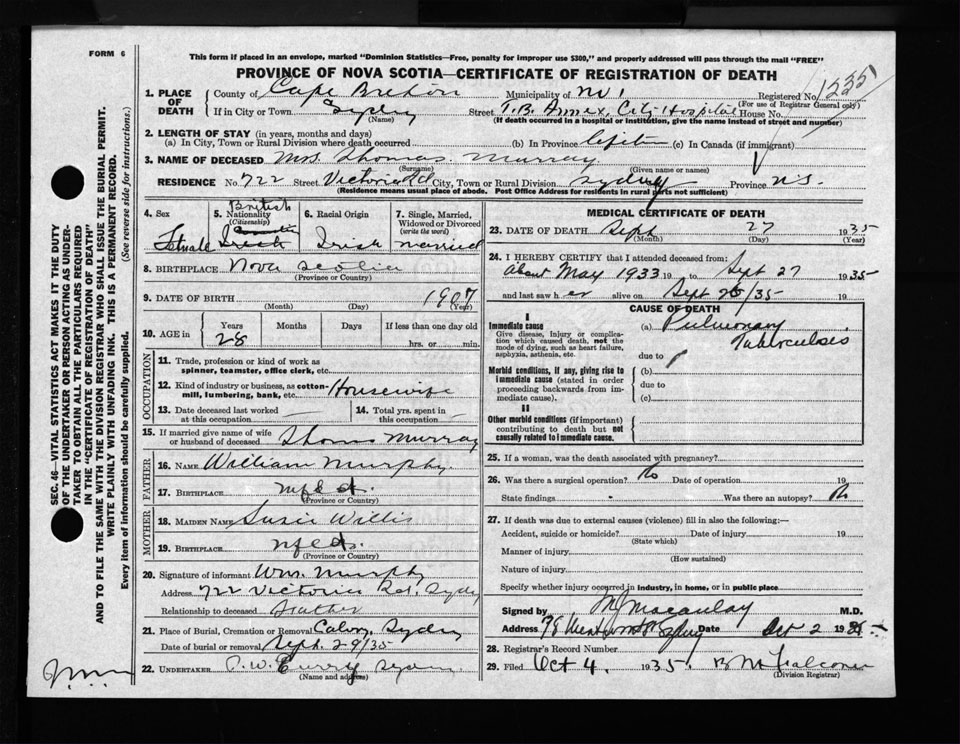 FORM 6
This form if placed in an envelope, marked "Dominion Statistics—Free, penalty for improper use $300," and properly addressed will pass through the mail "FREE"
PROVINCE OF NOVA SCOTIA—CERTIFICATE OF REGISTRATION OF DEATH
1. PLACE OF DEATH
County of Cape Breton Municipality of No 1 Registered No. 1235
(For use of Registrar General only)
If in City or Town Sydney Street T.B. Annex, City Hospital House No.
(Name) (If death occurred in a hospital or institution, give the name instead of street and number)
2. LENGTH OF STAY (in years, months and days)
(a) In City, Town or Rural Division where death occurred (b) In Province lifetime (c) In Canada (if immigrant)
3. NAME OF DECEASED Mrs. Thomas Murray
(Surname) (Given name or names)
RESIDENCE No. 722 Street Victoria Rd City, Town or Rural Division Sydney Province N.S.
(Residence means usual place of abode. Post Office Address for residents in rural parts not sufficient)
4. Sex Female
5. Nationality (Citizenship) British Irish
6. Racial Origin Irish
7. Single, Married, Widowed or Divorced (write the word) married
8. BIRTHPLACE Nova Scotia
(Province or Country)
9. DATE OF BIRTH 1907
(Month) (Day) (Year)
10. AGE in Years Months Days If less than one day old
28 hrs. or min.
OCCUPATION
11. Trade, profession or kind of work as spinner, teamster, office clerk, etc.
12. Kind of industry or business, as cotton-mill, lumbering, bank, etc. Housewife
13. Date deceased last worked at this occupation
14. Total yrs. spent in this occupation
15. If married give name of wife or husband of deceased Thomas Murray
FATHER
16. NAME William Murphy
17. BIRTHPLACE Nfld.
(Province or Country)
MOTHER
18. MAIDEN NAME Susie Willis
19. BIRTHPLACE Nfld.
(Province or Country)
20. Signature of informant Wm. Murphy
Address 722 Victoria Rd. Sydney
Relationship to deceased Father
21. Place of Burial, Cremation or Removal Calvary, Sydney
Date of burial or removal Sept. 29/35
22. UNDERTAKER Sydney
(Name and address)
MEDICAL CERTIFICATE OF DEATH
23. DATE OF DEATH Sept 27 1935
(Month) (Day) (Year)
24. I HEREBY CERTIFY that I attended deceased from:
About May 1933 19 to Sept 27 1935
and last saw her alive on Sept 26/35 19
CAUSE OF DEATH
I
Immediate cause
Give disease, injury or complication which caused death, not the mode of dying, such as heart failure, asphyxia, asthenia, etc.
(a) Pulmonary Tuberculosis
due to
Morbid conditions, if any, giving rise to immediate cause (stated in order proceeding backwards from immediate cause).
(b)
due to
(c)
II
Other morbid conditions (if important) contributing to death but not causally related to immediate cause.
25. If a woman, was the death associated with pregnancy?
26. Was there a surgical operation? No Date of operation 19
State findings Was there an autopsy? No
27. If death was due to external causes (violence) fill in also the following:—
Accident, suicide or homicide? Date of injury 19
(State which)
Manner of injury
(How sustained)
Nature of injury
Specify whether injury occurred in industry, in home, or in public place
Signed by M J Macaulay M.D.
Address 78 Sydney Date Oct 2 1935
28. Registrar's Record Number
29. Filed Oct 4. 1935. Falconer
(Division Registrar)
SEC. 46—VITAL STATISTICS ACT MAKES IT THE DUTY
OF THE UNDERTAKER OR PERSON ACTING AS UNDER-
TAKER TO OBTAIN ALL THE PARTICULARS REQUIRED
IN THE "CERTIFICATE OF REGISTRATION OF DEATH" AND TO FILE THE SAME WITH THE DIVISION REGISTRAR WHO SHALL ISSUE THE BURIAL PERMIT.
WRITE PLAINLY WITH UNFADING INK. THIS IS A PERMANENT RECORD.
Every item of information should be carefully supplied. (See reverse side for instructions.)